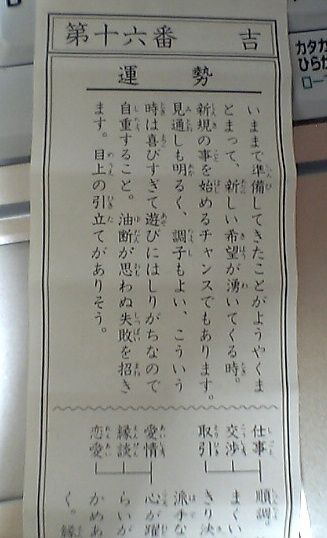 第十六番 吉
運勢
いままで準備してきたことがようやくま
とまって、新しい希望が湧いてくる時。
新規の事を始めるチャンスでもあります。
見通しも明るく、調子もよい、こういう
時は喜びすぎて遊びにはしりがちなので
自重すること。油断が思わぬ失敗を招き
ます。目上の引立てがありそう。
仕事
交渉
取引
順調。
まくい
きり決
愛情
縁談
恋愛
派手な
心が躍
らいが
かめあ
く。縁
カタカ
ひらが
ロー